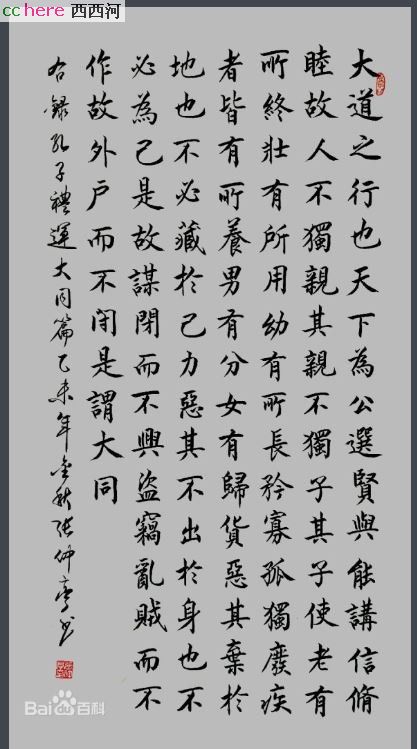 cchere 西西河
大道之行也天下為公選賢與能講信脩
睦故人不獨親其親不獨子其子使老有
所終壯有所用幼有所長矜寡孤獨廢疾
者皆有所養男有分女有歸貨惡其棄於
地也不必藏於己力惡其不出於身也不
必為己是故謀閉而不興盜竊亂賊而不
作故外戶而不閉是謂大同
右錄孔子禮運大同篇乙未年金秋張仲亭书
Bai百科